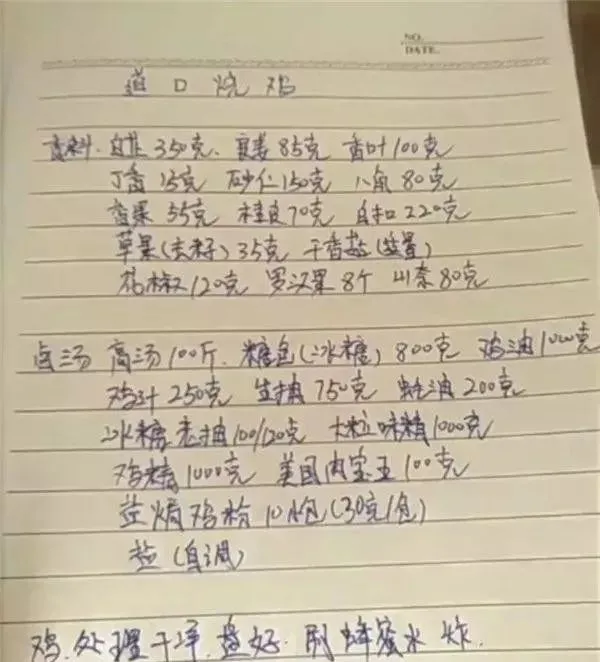 NO.
DATE.
道口烧鸡
香料. 白芷350克、良姜85克 香叶100克
丁香15克 砂仁150克 八角80克
草果(去籽)35克 干香菇(适量)
花椒120克 罗汉果8个 山奈80克
卤汤 高汤100斤. 糖色(冰糖)800克 鸡油1000克
鸡汁250克 生抽750克 蚝油200克
冰糖老抽100/120克 大粒味精1000克
鸡精1000克 美国肉宝王100克
盐焗鸡粉10小包(30克/包)
盐(自调)
鸡.处理干净.盘好.刷蜂蜜水 炸.